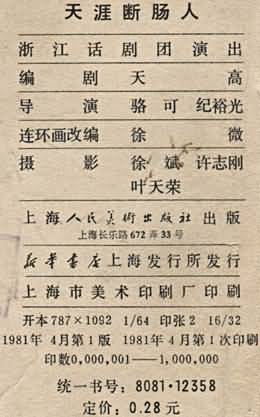 天涯断肠人
浙江话剧团演出
编剧 天高
导演 骆可 纪裕光
连环画改编 徐微
摄影 徐斌 许志刚
叶天荣
上海人民美术出版社出版
上海长乐路 672 弄 33 号
新华书店上海发行所发行
上海市美术印刷厂印刷
开本 787×1092 1/64 印张 2 16/32
1981年 4月第1版 1981年 4月第1次印刷
印数0,000,001——1,000,000
统一书号: 8081·12358
定价: 0.28 元